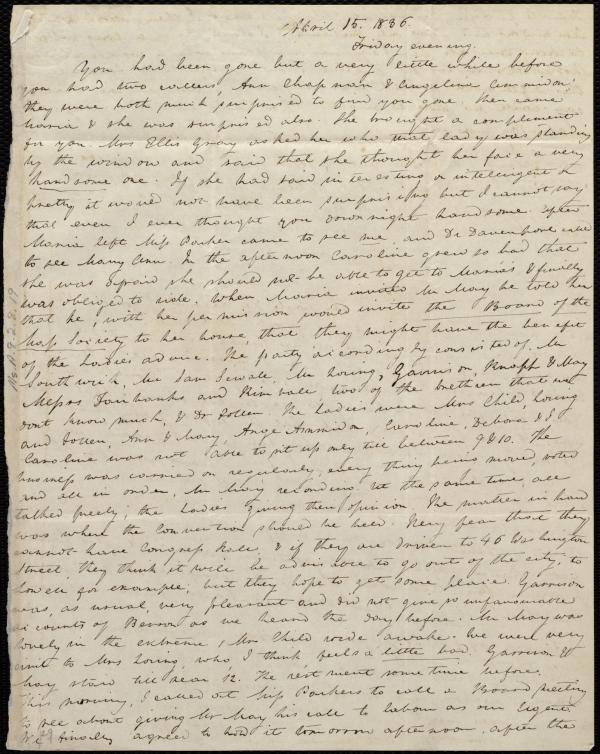 April 15. 1836.
Friday evening.
You had been gone but a very little while before
you had two callers, Ann Chapman & Angelina Ammidon,
they were both much surprised to find you gone then came
Maria & she was surprised also. She brought a complement
for you. Mrs Ellis Gray asked her who that lady was standing
by the window and said that she thought her face a very
handsome one. If she had said interesting or intelligent or
pretty it would not have been surprising but I cannot say
that even I ever thought you downright handsome. After
Maria left Miss Parker came to see me, and Dr Davenport called
to see Mary Ann. In the afternoon Caroline grew so bad that
she was afraid she should not be able to get to Maria's & finally
was obliged to ride. When Maria invited Mr May he told her
that he, with her permission would invite the Board of the
Mass Society to her house, that they might have the benefit
of the Ladies advice. The party accordingly consisted of, Mr
Southwick, Mr Sam Sewall, Mr Loring, Garrison, Knapp & May
Messrs Fairbanks and Kimball, two of the brethren that we
don't know much, & Dr Follen. The Ladies were Mrs Child, Loring
and Follen, Ann & Mary, Ange Ammidon, Caroline, Debora & I.
Caroline was not able to sit up only till between 9 & 10. The
business was carried on regularly, every thing being moved, voted
and all in order, Mr May recording. At the same time, all
talked freely, the Ladies giving their opinion. The matter in hand
was where the Convention should be held. They fear that they
cannot have Congress Hall, & if they are driven to 46 Washington
Street they think it will be advisable to go out of the city, to
Lowell for example, but they hope to get some place. Garrison
was, as usual, very pleasant and did not give so unfavourable
accounts of Benson as we heard the day before. Mr May was
lovely in the extreme, Mrs Child wide awake. We were very
civil to Mrs Loring, who, I think, feels a little bad. Garrison &
May staid till near 12. The rest went some time before.
This morning, I called at Miss Parkers to call a Board meeting
to see about giving Mr May his call to labour as our Agent.
agreed to hold it tomorrow afternoon, after the